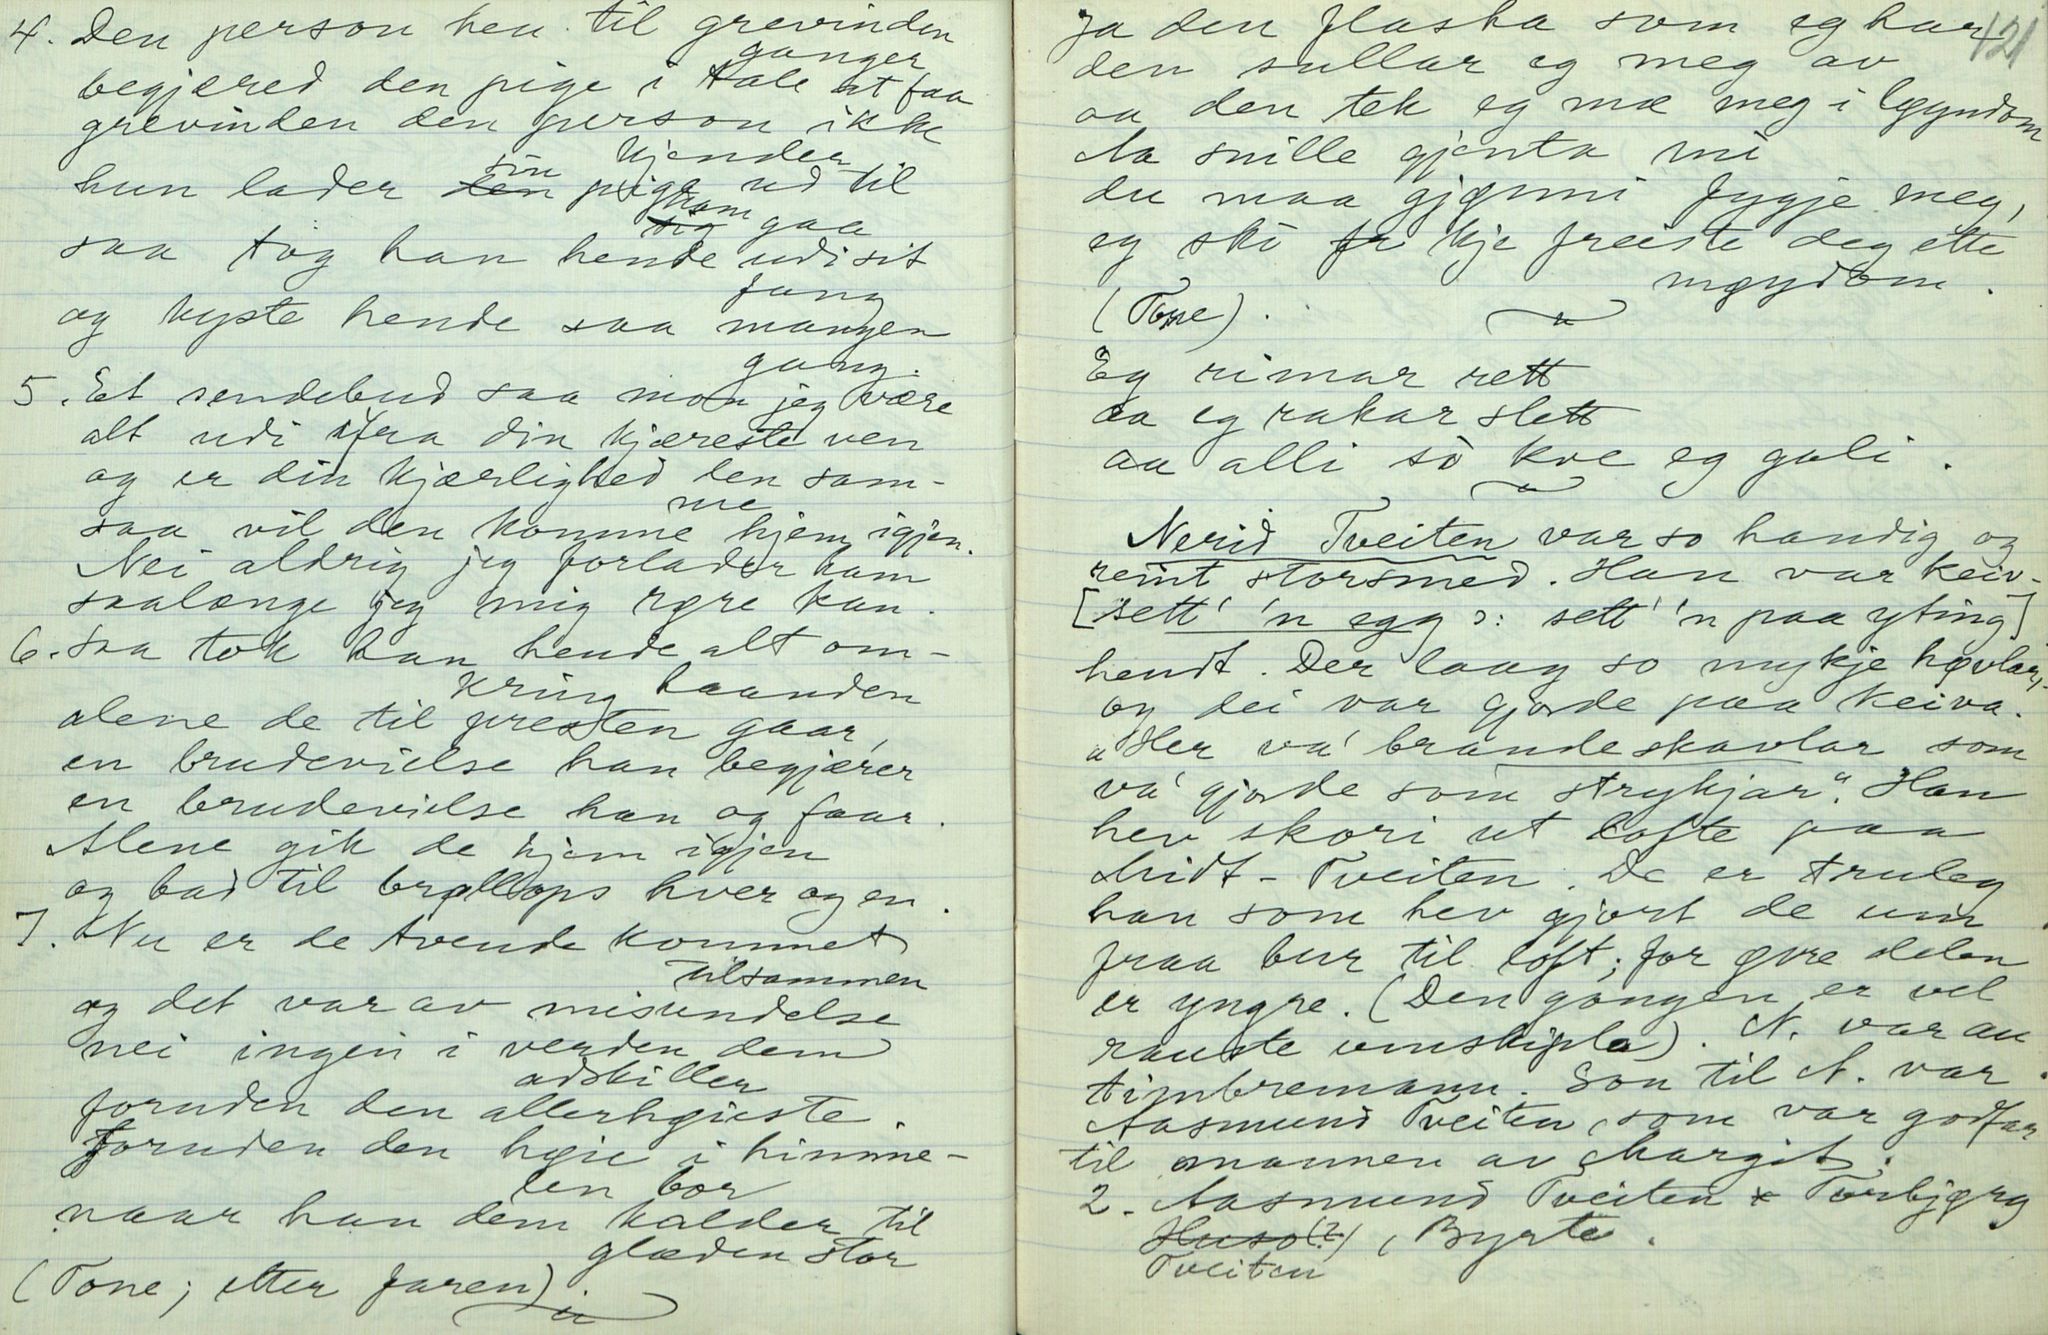 4. Den person hen til grevinden
ganger
begjæred den pige i tale at faa
grevinden den person ikke
kjender
hun lader den sin pige ud til
sig ham gaa
saa tog han hende udi sit
fang
og kyste hende saa mangen
gang.
5. Et sendebud saa mon jeg være
alt udi ifra din kjæreste ven
og er din kjærlighed den sam-
me
saa vil den komme hjem igjen.
Nei aldrig jeg forlader ham
saalænge jeg mig røre kan.
6. Saa tok han hende alt om-
kring haanden
alene de til presten gaar,
en brudevielse han begjærer
en brudevielse han og faar.
Alene gik de hjem igjen
og bad til brøllops hver og en.
7. Nu er de tvende kommet
tilsammen
og det var av misundelse
nei ingen i verden dem
adskiller
foruden den allerhøieste.
Foruden den høie i himme-
len bor
naar han dem kalder til
glæden stor
(Tone; etter faren).
121
Ja den flaska som eg har
den sullar eg meg av
aa den tek eg mæ meg i løyndom
Aa snille gjenta mi
du maa gjønni fygje meg,
eg ski fr kje freiste deg ette
møydom.
(Tone).
Eg rimar rett
aa eg rakar slett
aa alli so kve eg gali.
Nerid Tveiten var so handig og
reint storsmed. Han var keiv-
[sett' 'n egg ɔ: sett' 'n paa yting]
hendt. Der laag so mykje høvlar,
og dei var gjorde paa keiva.
"Her va' brandeskavlar som
va' gjorde som strykjar". Han
hev skori ut lofte paa
Midt-Tveiten. De er truleg
han som hev gjort de um
fraa bur til loft; for øvre delen
er yngre. (Den gongen er vel
rauste umskipla). N. var au
timbremann. Son til N. var
Aasmund Tveiten, som var godfar
til mannen av Margit.
2. Aasmund Tveiten × Torbjørg
Huso(?), Byrte.
Tveiten